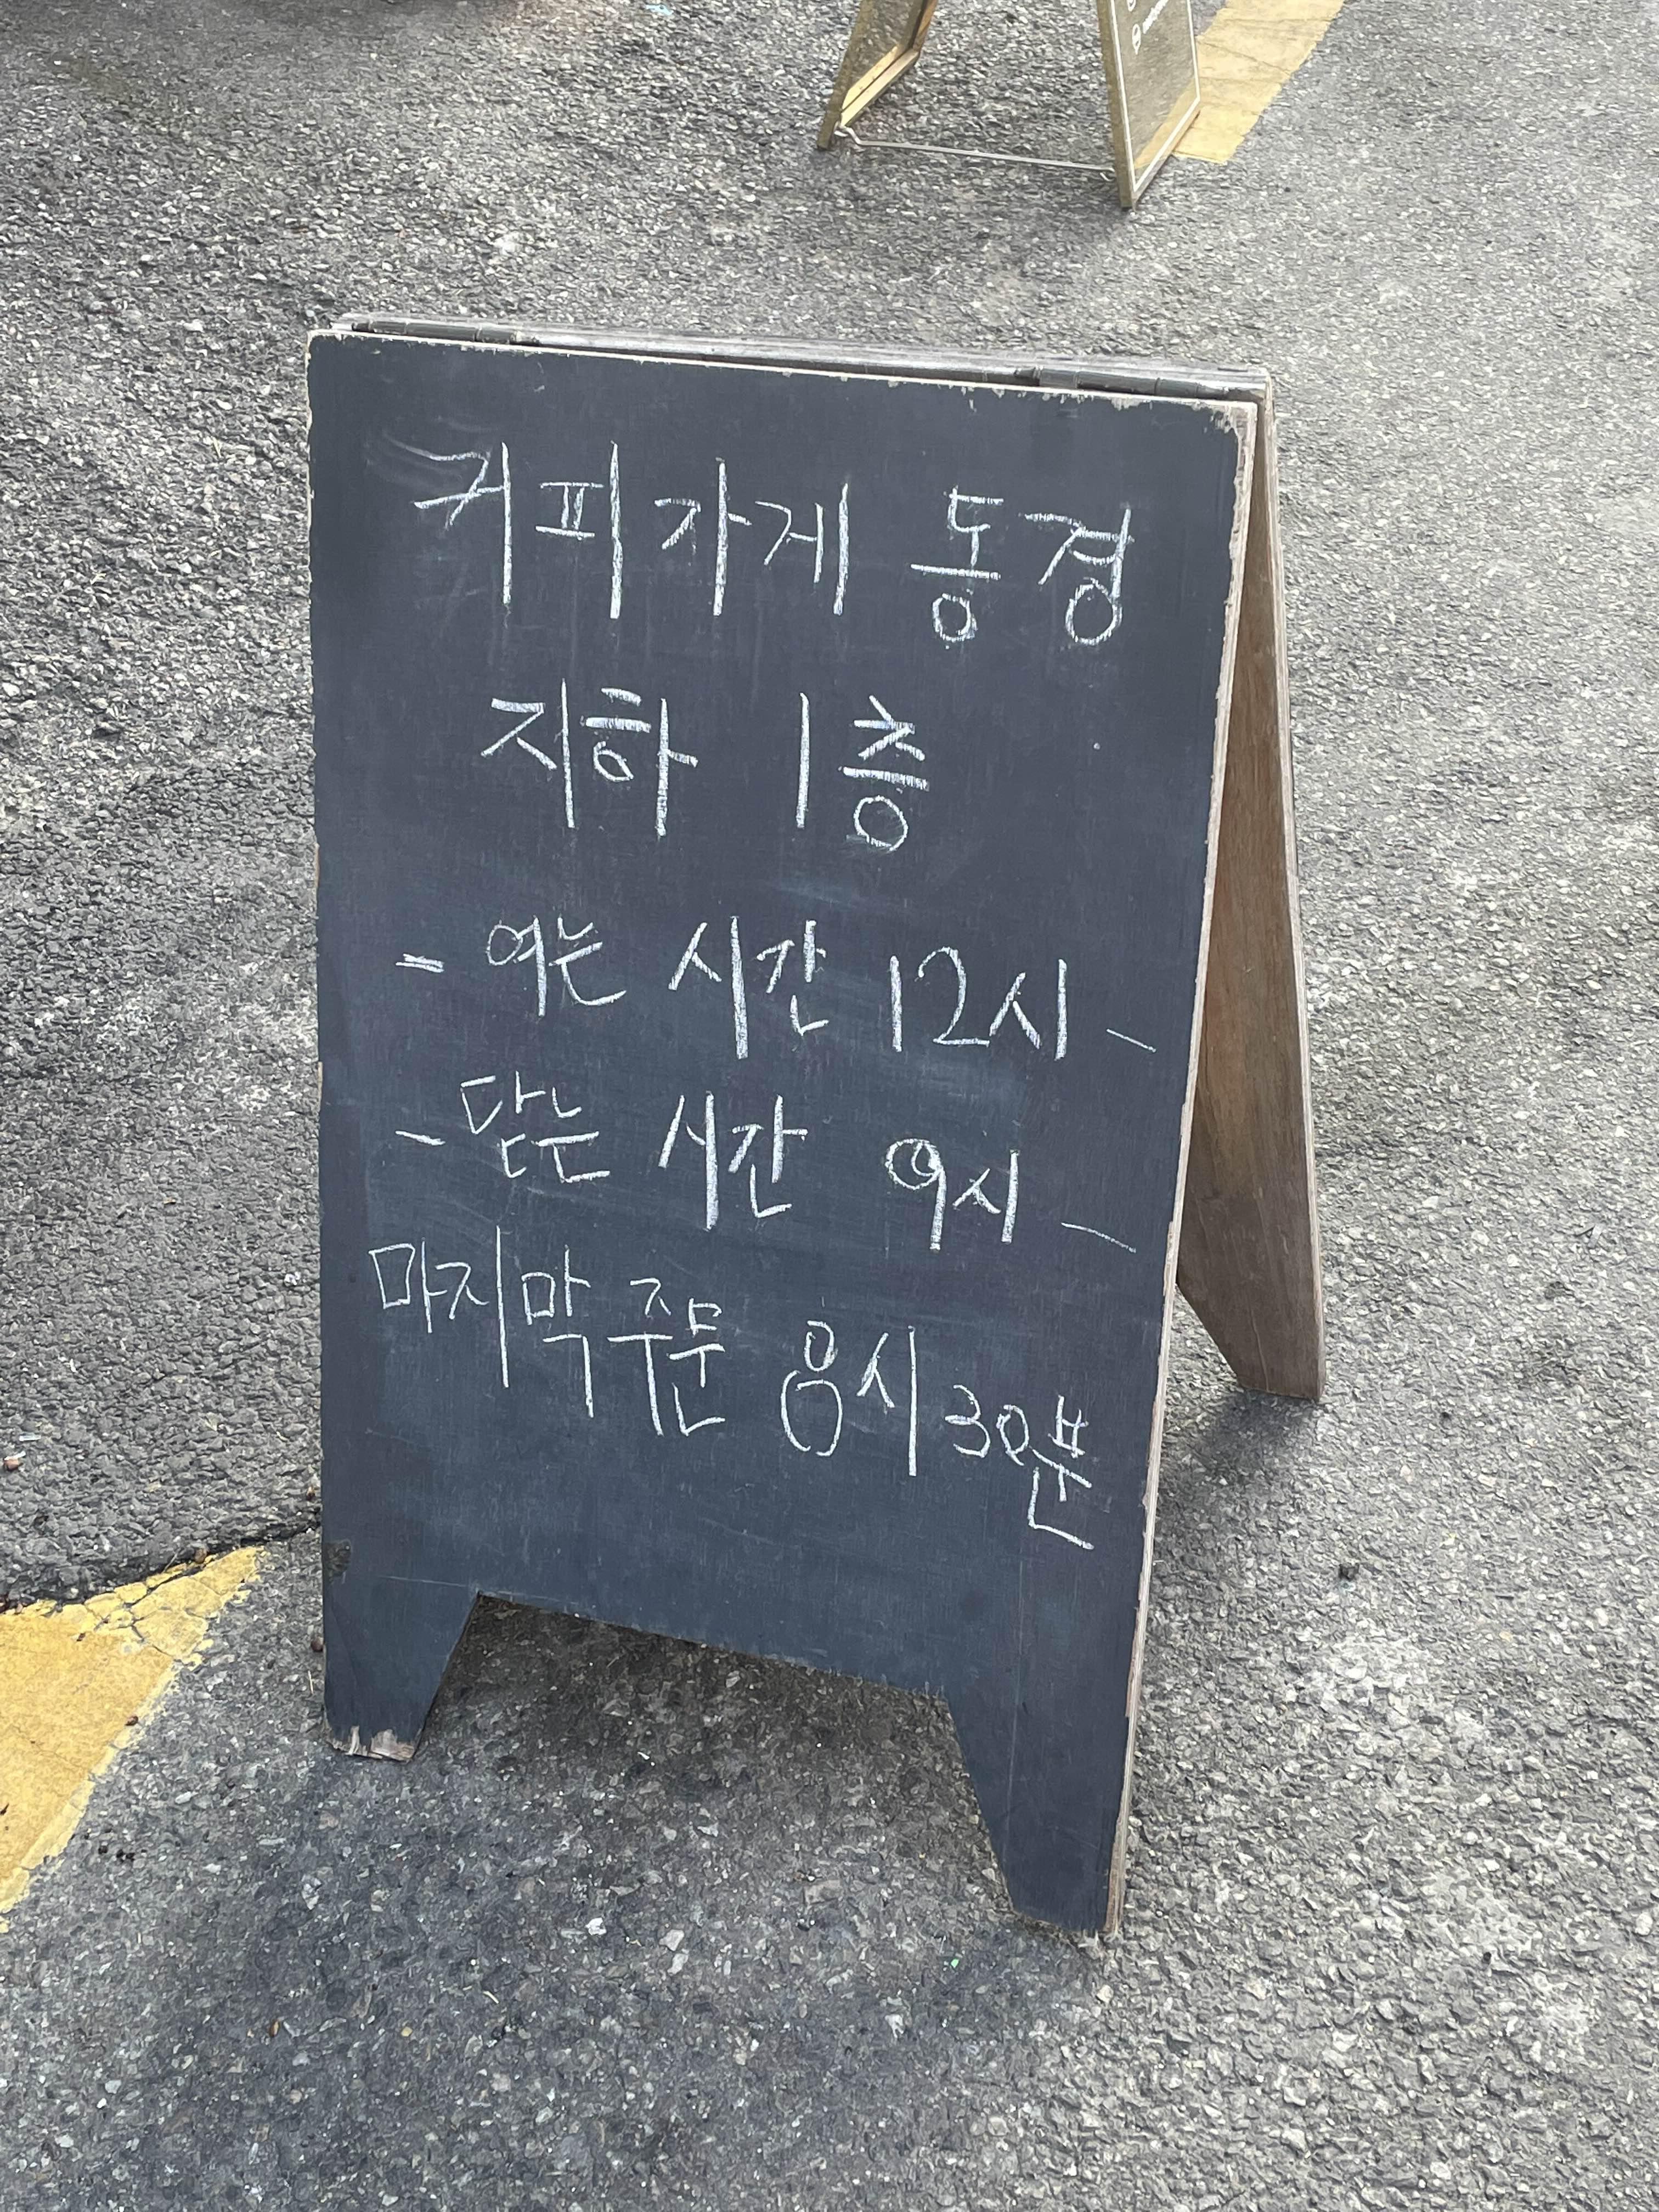 커피가게 동경
지하 1층
- 여는 시간 12시 -
- 닫는 시간 9시 -
마지막 주문 8시 30분